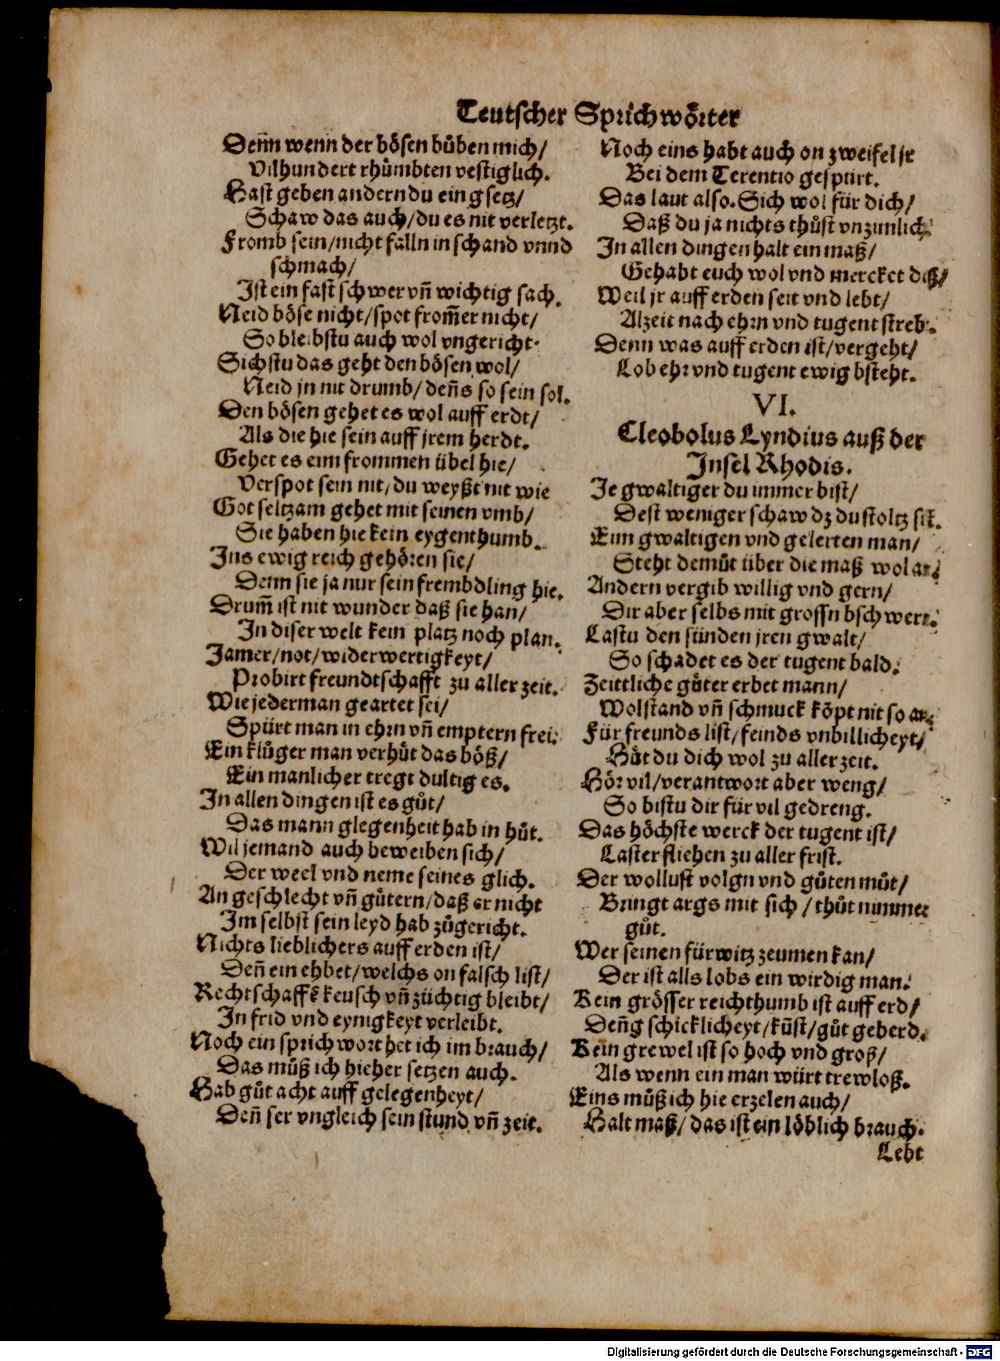 Teutscher Sprichwoͤrter
Deñn wenn der boͤsen buͤben mich/
Vilhundert rhuͤmbten vestiglich.
Hast geben andern du ein gsetz/
Schaw das auch/du es nit verletzt.
Fromb sein/nicht falln in schand vnnd
schmach/
Ist ein fast schwer vñ wichtig sach.
Neid boͤse nicht/spot from̃er nicht/
So bleibstu auch wol vngericht.
Sichstu das geht den boͤsen wol/
Neid jn nit drumb/deñs so sein sol.
Den boͤsen gehet es wol auff erdt/
Als die hie sein auff jrem herdt.
Gehet es eim frommen uͤbel hie/
Verspot sein nit/du weyßt nit wie
Got seltzam gehet mit seinen vmb/
Sie haben hie kein eygenthumb.
Ins ewig reich gehoͤren sie/
Denn sie ja nur sein frembdling hie.
Drum̃ ist nit wunder daß sie han/
In diser welt kein platz noch plan.
Jamer/not/widerwertigkeyt/
Probirt freundtschafft zu aller zeit.
Wie jederman geartet sei/
Spuͤrt man in ehrn vñ emptern frei.
Ein kluͤger man verhuͤt das boͤß/
Ein manlicher tregt dultig es.
In allen dingen ist es guͤt/
Das mann glegenheit hab in huͤt.
Wil jemand auch beweiben sich/
Der weel vnd neme seines glich.
An geschlecht vñ guͤtern/daß er nicht
Im selbst sein leyd hab zuͤgericht.
Nichts lieblichers auff erden ist/
Deñ ein ehbet/welchs on falsch list/
Rechtschaffẽ keusch vñ zuͤchtig bleibt/
In frid vnd eynigkeyt verleibt.
Noch ein sprichwort het ich im brauch/
Das muͤß ich hieher setzen auch.
Hab guͤt acht auff gelegenheyt/
Deñ ser vngleich sein stund vñ zeit.
Noch eins habt auch on zweifel jr
Bei dem Terentio gespuͤrt.
Das laut also. Sich wol fuͤr dich/
Daß du ja nichts thuͤst vnzimlich.
In allen dingen halt ein maß/
Gehabt euch wol vnd mercket diß/
Weil jr auff erden seit vnd lebt/
Alzeit nach ehrn vnd tugent streb.
Denn was auff erden ist/vergeht/
Lob ehr vnd tugent ewig bsteht.
VI.
Cleobolus Lyndius auß der
Insel Rhodis.
Je gwaltiger du immer bist/
Dest weniger schaw dz du stoltz
Eim gwaltigen vnd gelerten man/
Steht demuͤt uͤber die maß wol
Andern vergib willig vnd gern/
Dir aber selbs mit grossn bschwert.
Lastu den suͤnden jren gwalt/
So schadet es der tugent bald.
Zeittliche guͤter erbet mann/
Wolstand vñ schmuck koͤpt nit so
Fuͤr freunds list/feinds vnbillicheyt/
Huͤt du dich wol zu aller zeit.
Hoͤr vil/verantwort aber weng/
So bistu dir fuͤr vil gedreng.
Das hoͤchste werck der tugent ist/
Laster fliehen zu aller frist.
Der wollust volgn vnd guͤten muͤt/
Bringt args mit sich/thuͤt nimmer
guͤt.
Wer seinen fuͤrwitz zeumen kan/
Der ist alls lobs ein wirdig man.
Kein groͤsser reichthumb ist auff erd/
Deñg schicklicheyt/kuͤ̃st/guͤt geberd.
Kein grewel ist so hoch vnd groß/
Als wenn ein man wuͤrt trewloß.
Eins muͤß ich hie erzelen auch/
Halt maß/das ist ein loͤblich brauch.
Lebt
Digitalisierung gefördert durch die Deutsche Forschungsgemeinschaft - DFG